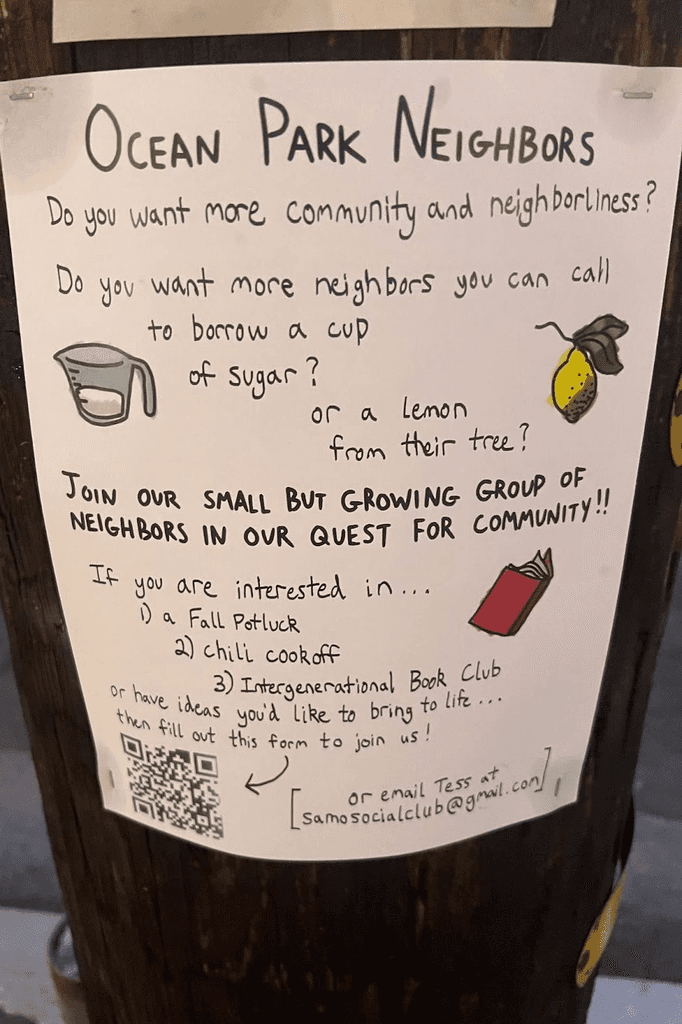 OCEAN PARK NEIGHBORS
Do you want more community and neighborliness?
Do you want more neighbors you can call
to borrow a cup
of sugar?
or a lemon
from their tree?
JOIN OUR SMALL BUT GROWING GROUP OF
NEIGHBORS IN OUR QUEST FOR COMMUNITY!!
If you are interested in...
1) a Fall Potluck
2) chili cookoff
3) Intergenerational Book Club
or have ideas you'd like to bring to life...
then fill out this form to join us!
[or email Tess at
samosocialclub@gmail.com]